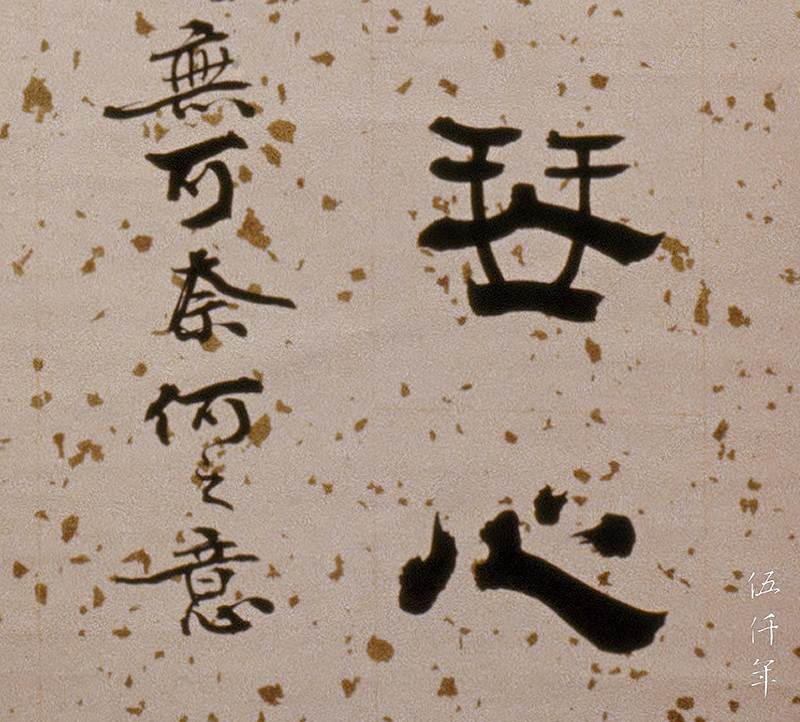 琴心
無可奈何之意
伍仟年